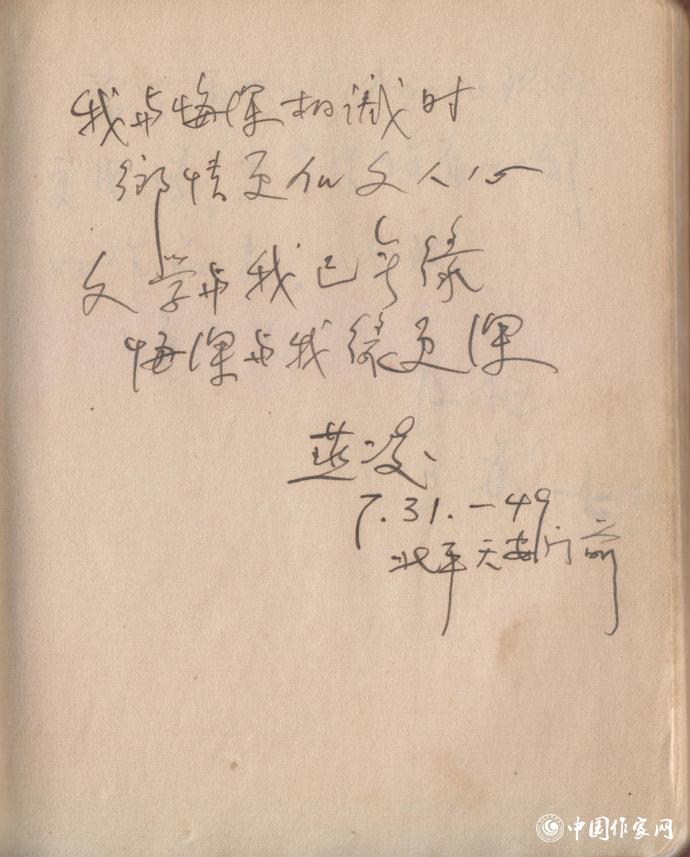 我与悔深相識时
鄉情更似文人心
文学与我已无緣
悔深与我緣更深
燕凌
7.31.—49
北平天安门前
中国作家网